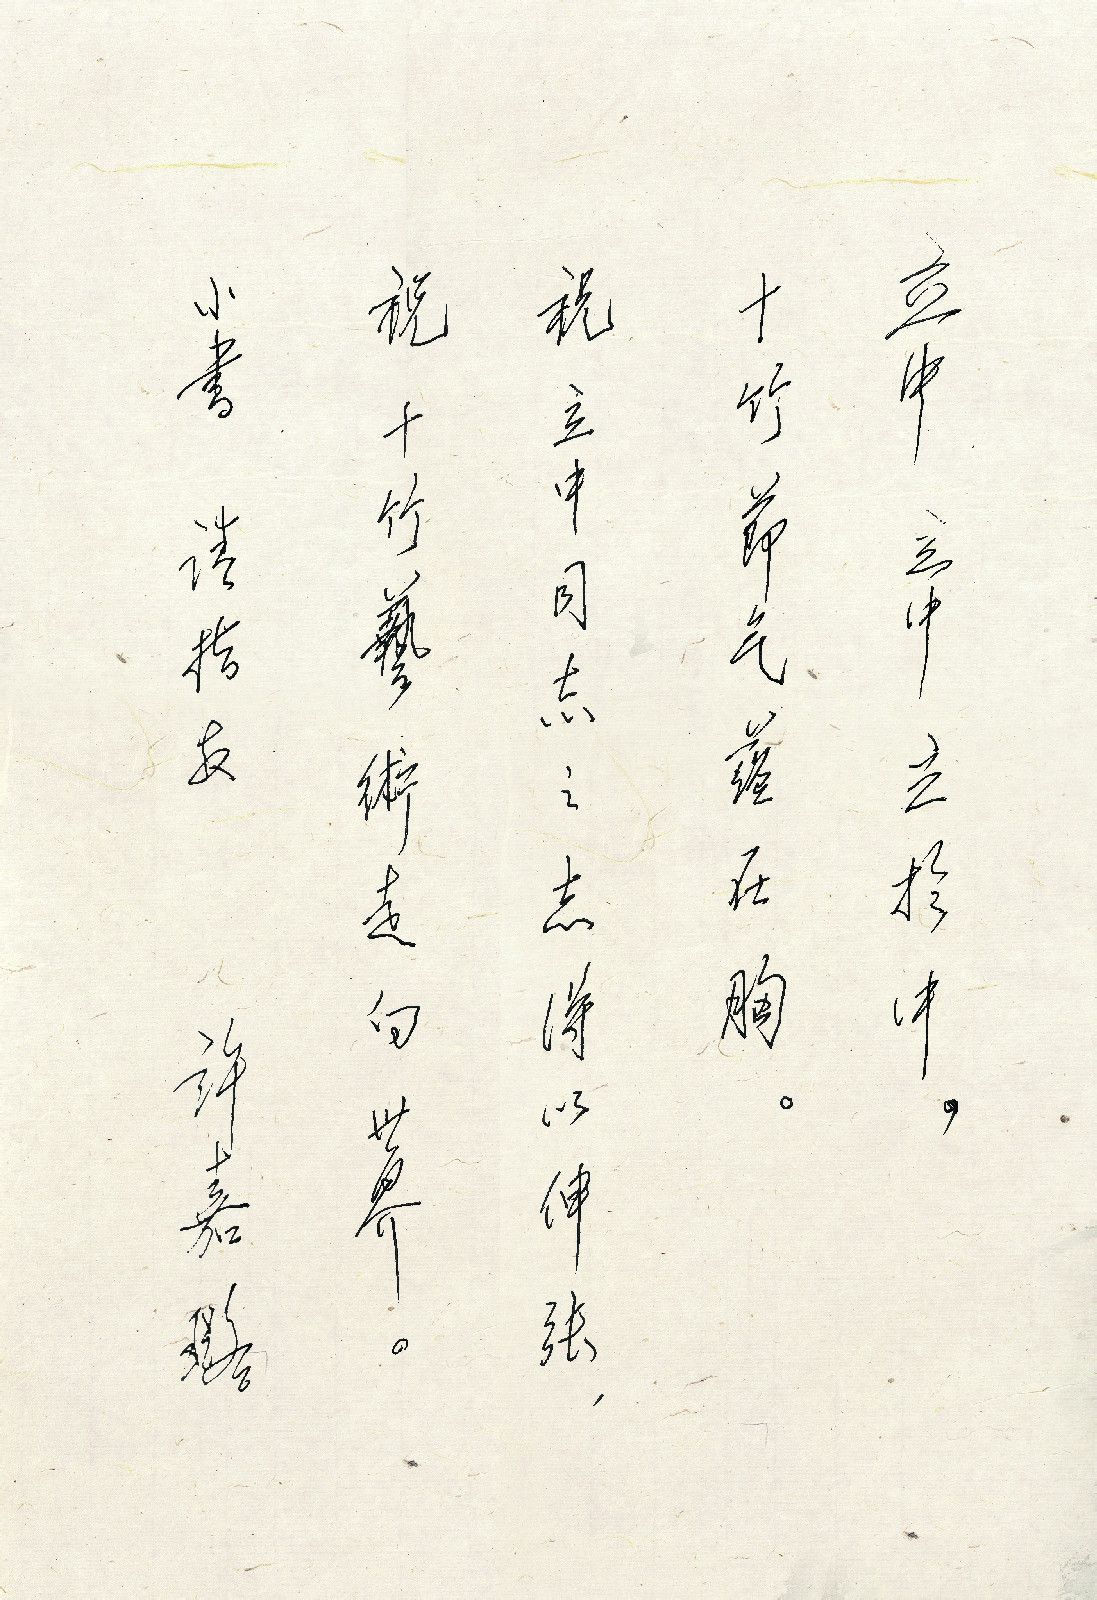 立中 立中 立於中，
十竹節气蘊在胸。
祝立中同志之志得以伸张，
祝十竹藝術走向世界。
小書 请指教 許嘉璐